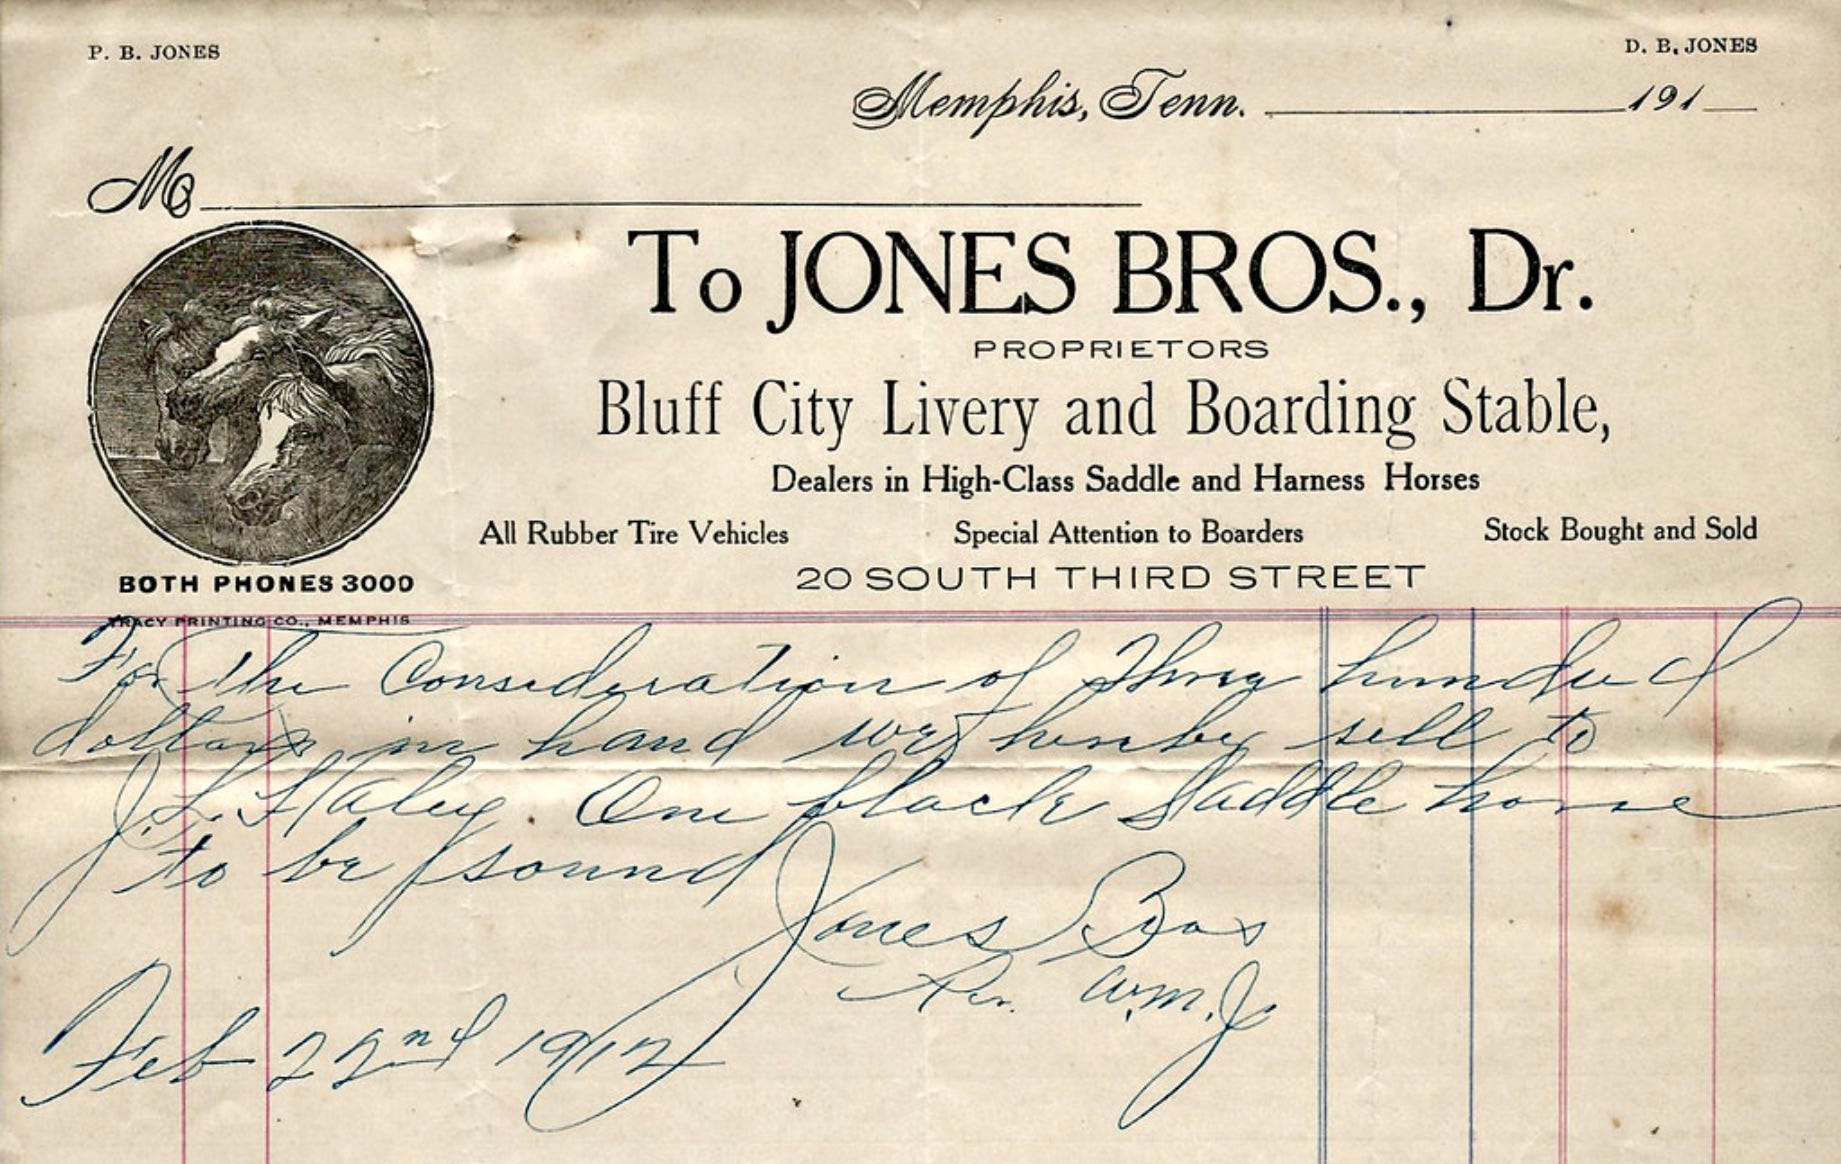 P. B. JONES
D. B. JONES
Memphis, Tenn. 191
M
To JONES BROS., Dr.
PROPRIETORS
Bluff City Livery and Boarding Stable,
Dealers in High-Class Saddle and Harness Horses
All Rubber Tire Vehicles Special Attention to Boarders Stock Bought and Sold
20 SOUTH THIRD STREET
BOTH PHONES 3000
TRACY PRINTING CO., MEMPHIS
For the Consideration of Three hundred
dollars in hand we hereby sell to
J. L. One black Saddle horse
to be sound
Jones Bros
Per. W.M.J.
Feb 22nd 1912